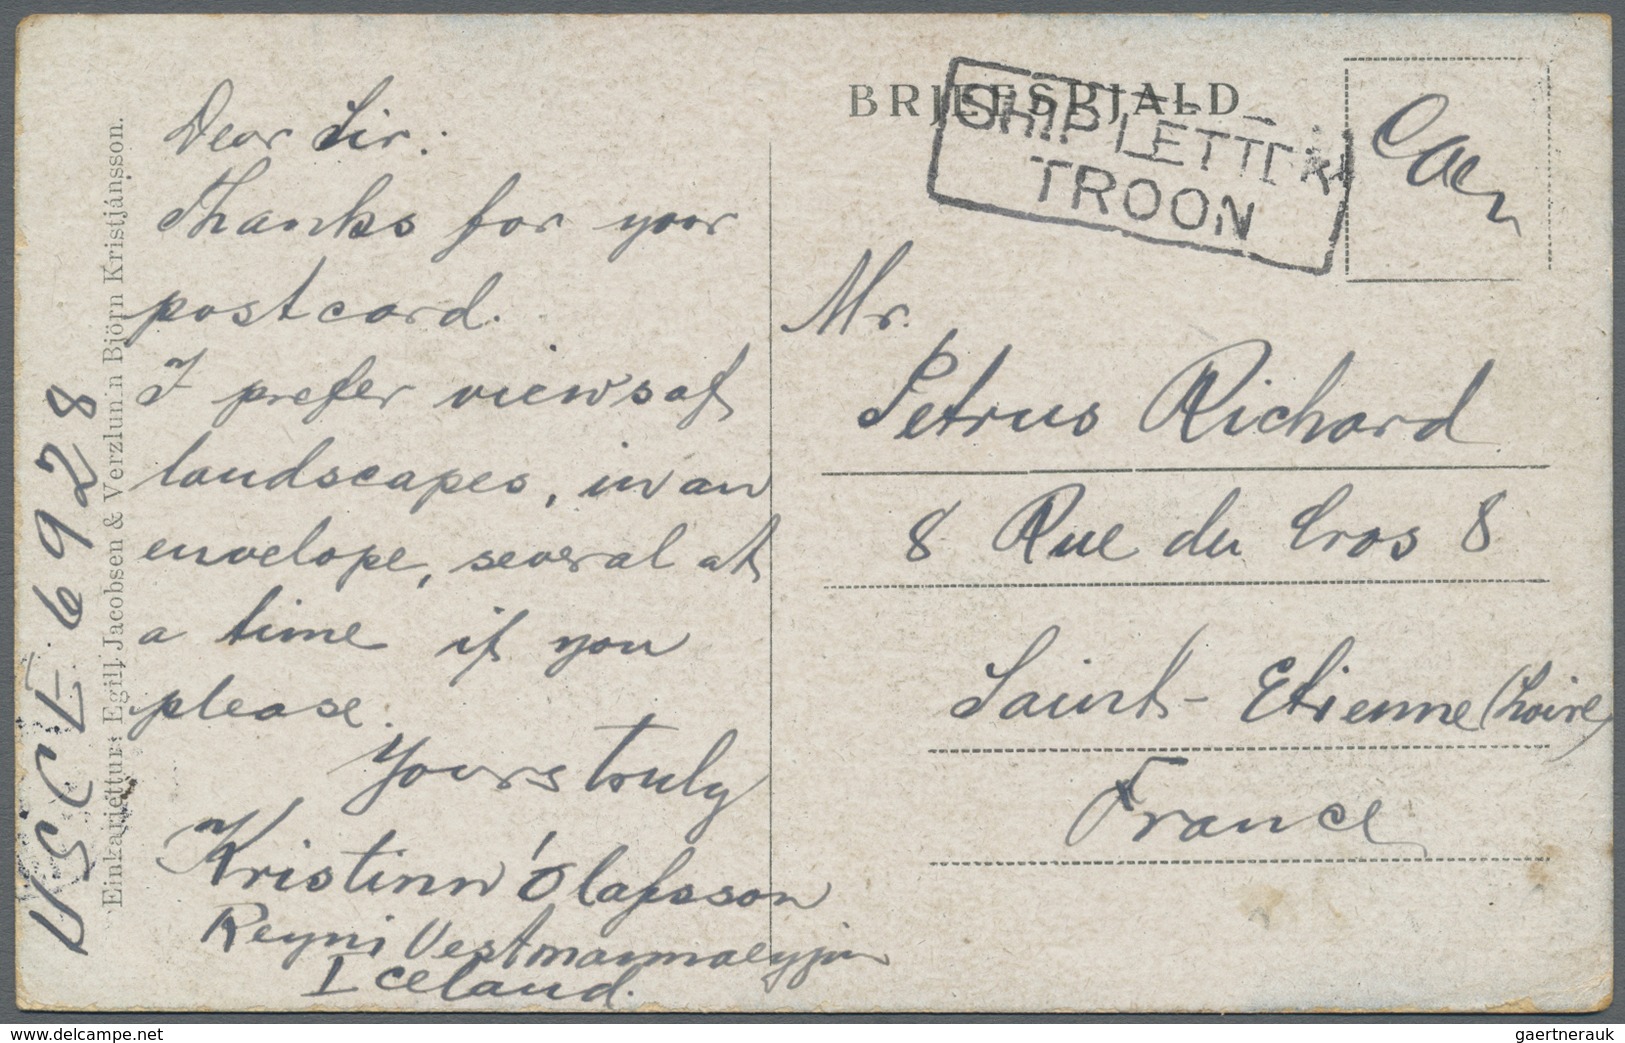 BRJEFSPJALD
SHIP LETTER
TROON
Dear Sir.
Thanks for your
postcard.
I prefer views of
landscapes, in an
envelope, several at
a time if you
please.
Yours truly
Kristinn Ólafsson
Reyni Vestmannaeyjum
Iceland.
Mr.
Petrus Richard
8 Rue du Cros 8
Saint-Etienne (Loire)
France
VSCE 6928
Einkarjettur: Egill Jacobsen & Verzlunin Björn Kristjánsson.
www.delcampe.net
gaertnerauk